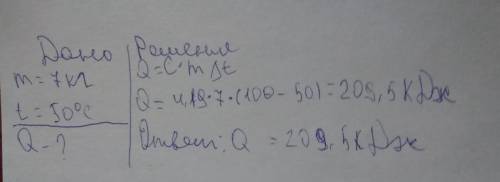 Дано
m = 7кг
t = 50°C
Q - ?
Решение
Q = C·m Δt
Q = 4,19·7·(100 - 50) = 209,5 кДж
Ответ: Q = 209,5 кДж